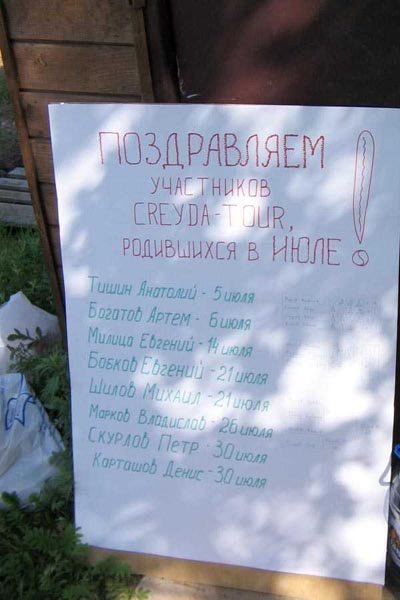 ПОЗДРАВЛЯЕМ
УЧАСТНИКОВ
CREYDA-TOUR,
РОДИВШИХСЯ В ИЮЛЕ!
Тишин Анатолий - 5 июля
Богатов Артем - 6 июля
Милица Евгений - 14 июля
Бобков Евгений - 21 июля
Шилов Михаил - 21 июля
Марков Владислав - 26 июля
Скурлов Петр - 30 июля
Карташов Денис - 30 июля